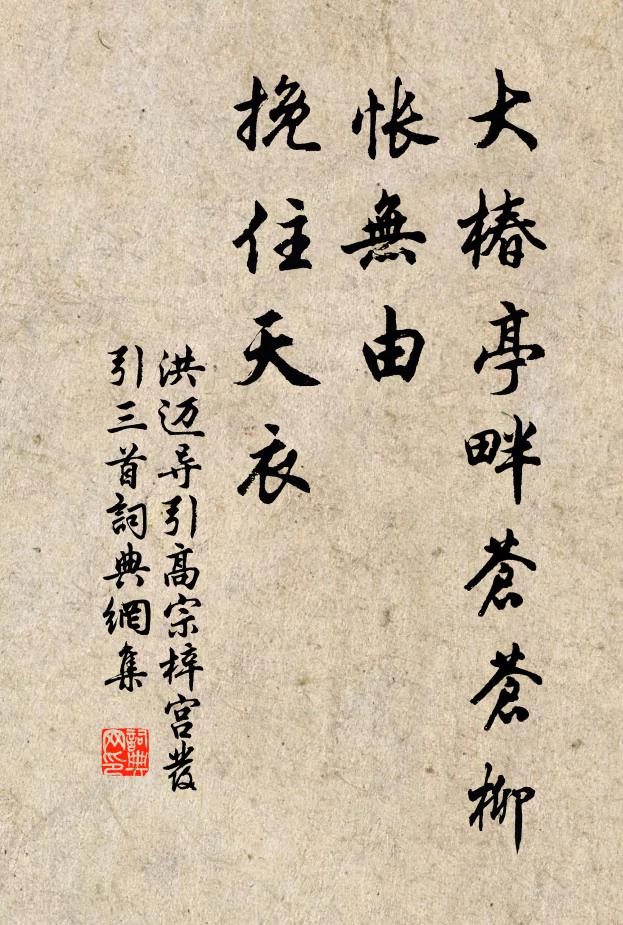 大椿亭畔蒼蒼柳
悵無由
挽住天衣
洪迈导引高宗梓宫發
引三首詞典網集
詞典网印